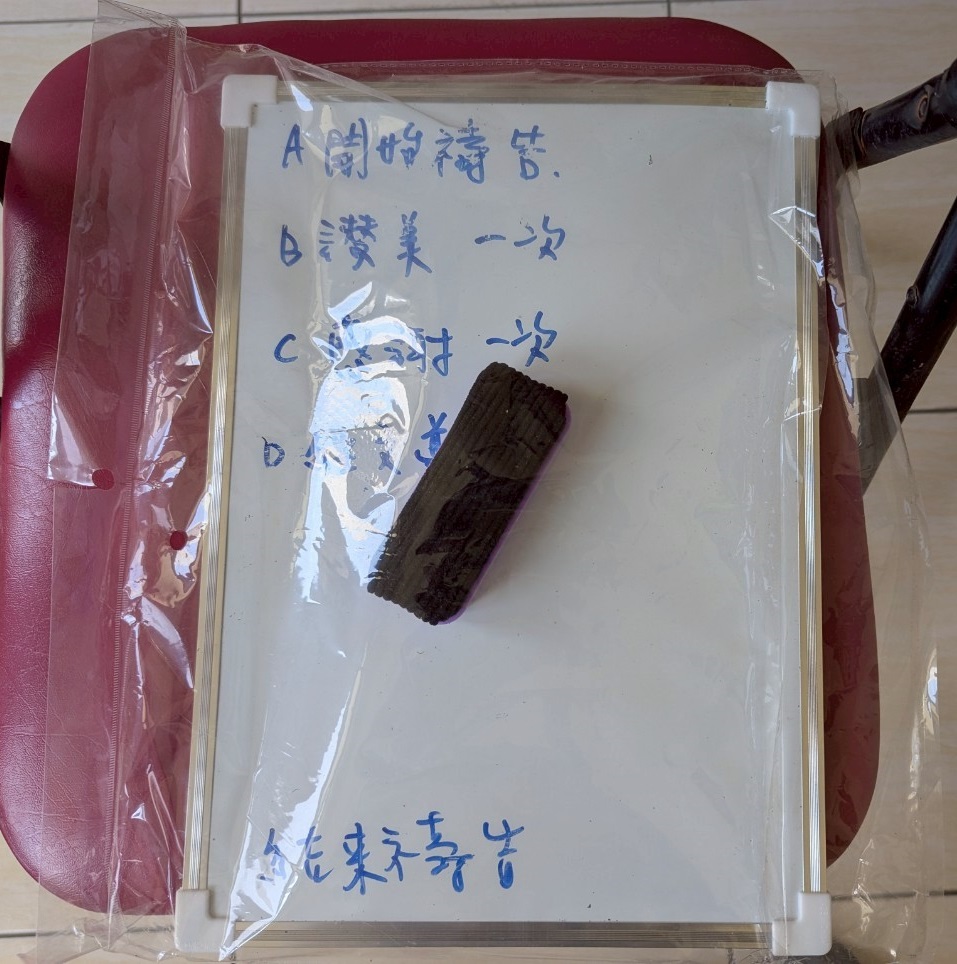 A 開始禱告.
B 讚美 一次
C 感謝 一次
D
結束禱告